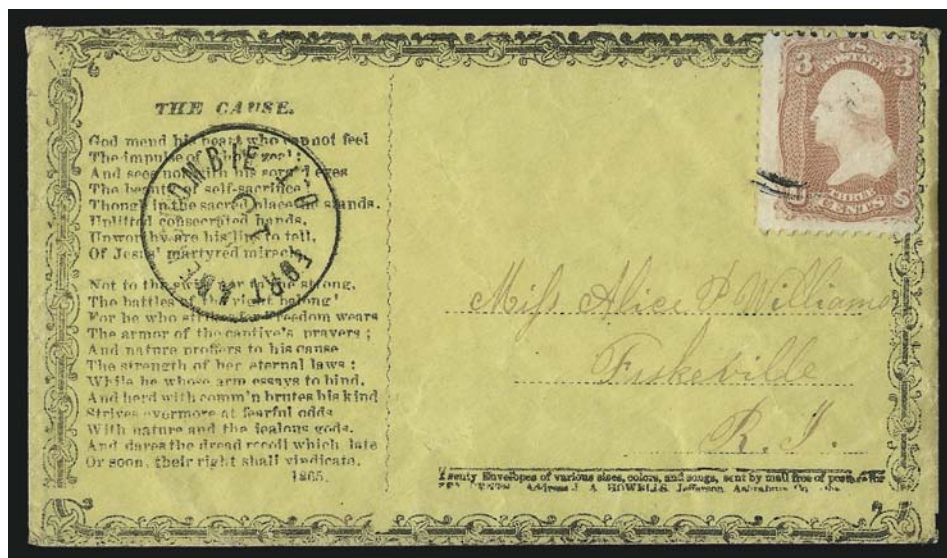 THE CAUSE.
God mend his heart who cannot feel
The impulse of zeal;
And sees not with his eyes
The beauty of self-sacrifice
Though in the sacred place he stands.
Uplifted consecrated hands.
Unworthy are his lips to tell,
Of Jesus' martyred miracle
Not to the swift nor to the strong,
The battles of the right belong!
For he who strikes for Freedom wears
The armor of the captive's prayers;
And nature proffers to his cause
The strength of her eternal laws:
While he whose arm essays to bind.
And herd with comm'n brutes his kind
Strives evermore at fearful odds
With nature and the jealous gods.
And dares the dread recoil which late
Or soon, their right shall vindicate.
1865.
FORT
U.S.
POSTAGE
3 3
THREE
CENTS
U S
Miss Alice P Williams
Fiskeville
R. I.
Twenty Envelopes of various sizes, colors, and songs, sent by mail free of postage for
CENTS Address J. A. HOWELLS. Jefferson, Ashtabula Co.